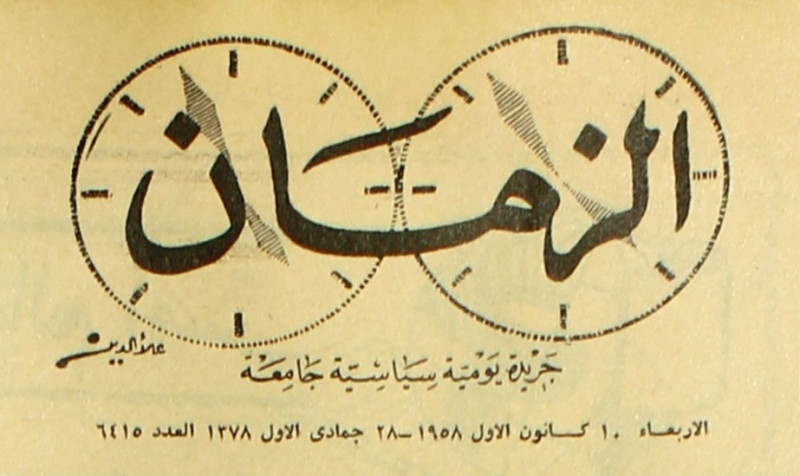 الزمان
علاء الدين
جريدة يومية سياسية جامعة
الاربعاء ١٠ كانون الاول ١٩٥٨ - ٢٨ جمادى الاول ١٣٧٨ العدد ٦٤١٥